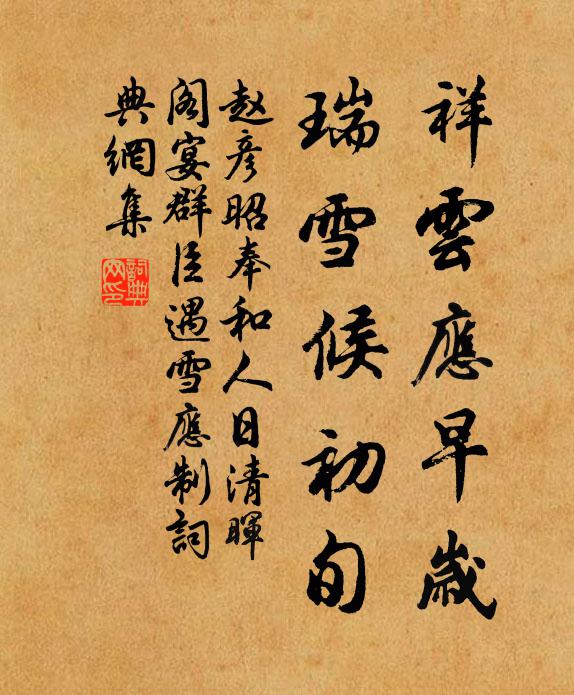 祥雲應早歲
瑞雪候初旬
赵彦昭奉和人日清暉
阁宴群臣遇雪應制詞
典網集
詞典
网印